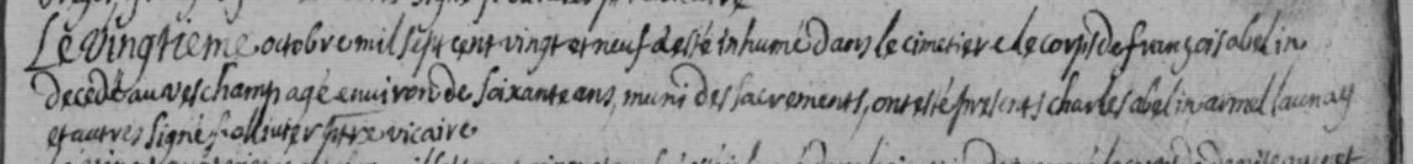 Le vingtieme octobre mil sept cent vingt et neuf a esté inhumé dans le cimetiere le corps de françois abelin
decedé au veschamp agé environ de soixante ans, muni des sacrements, ont esté presents charles abelin armel launay
et autres signé ptre vicaire